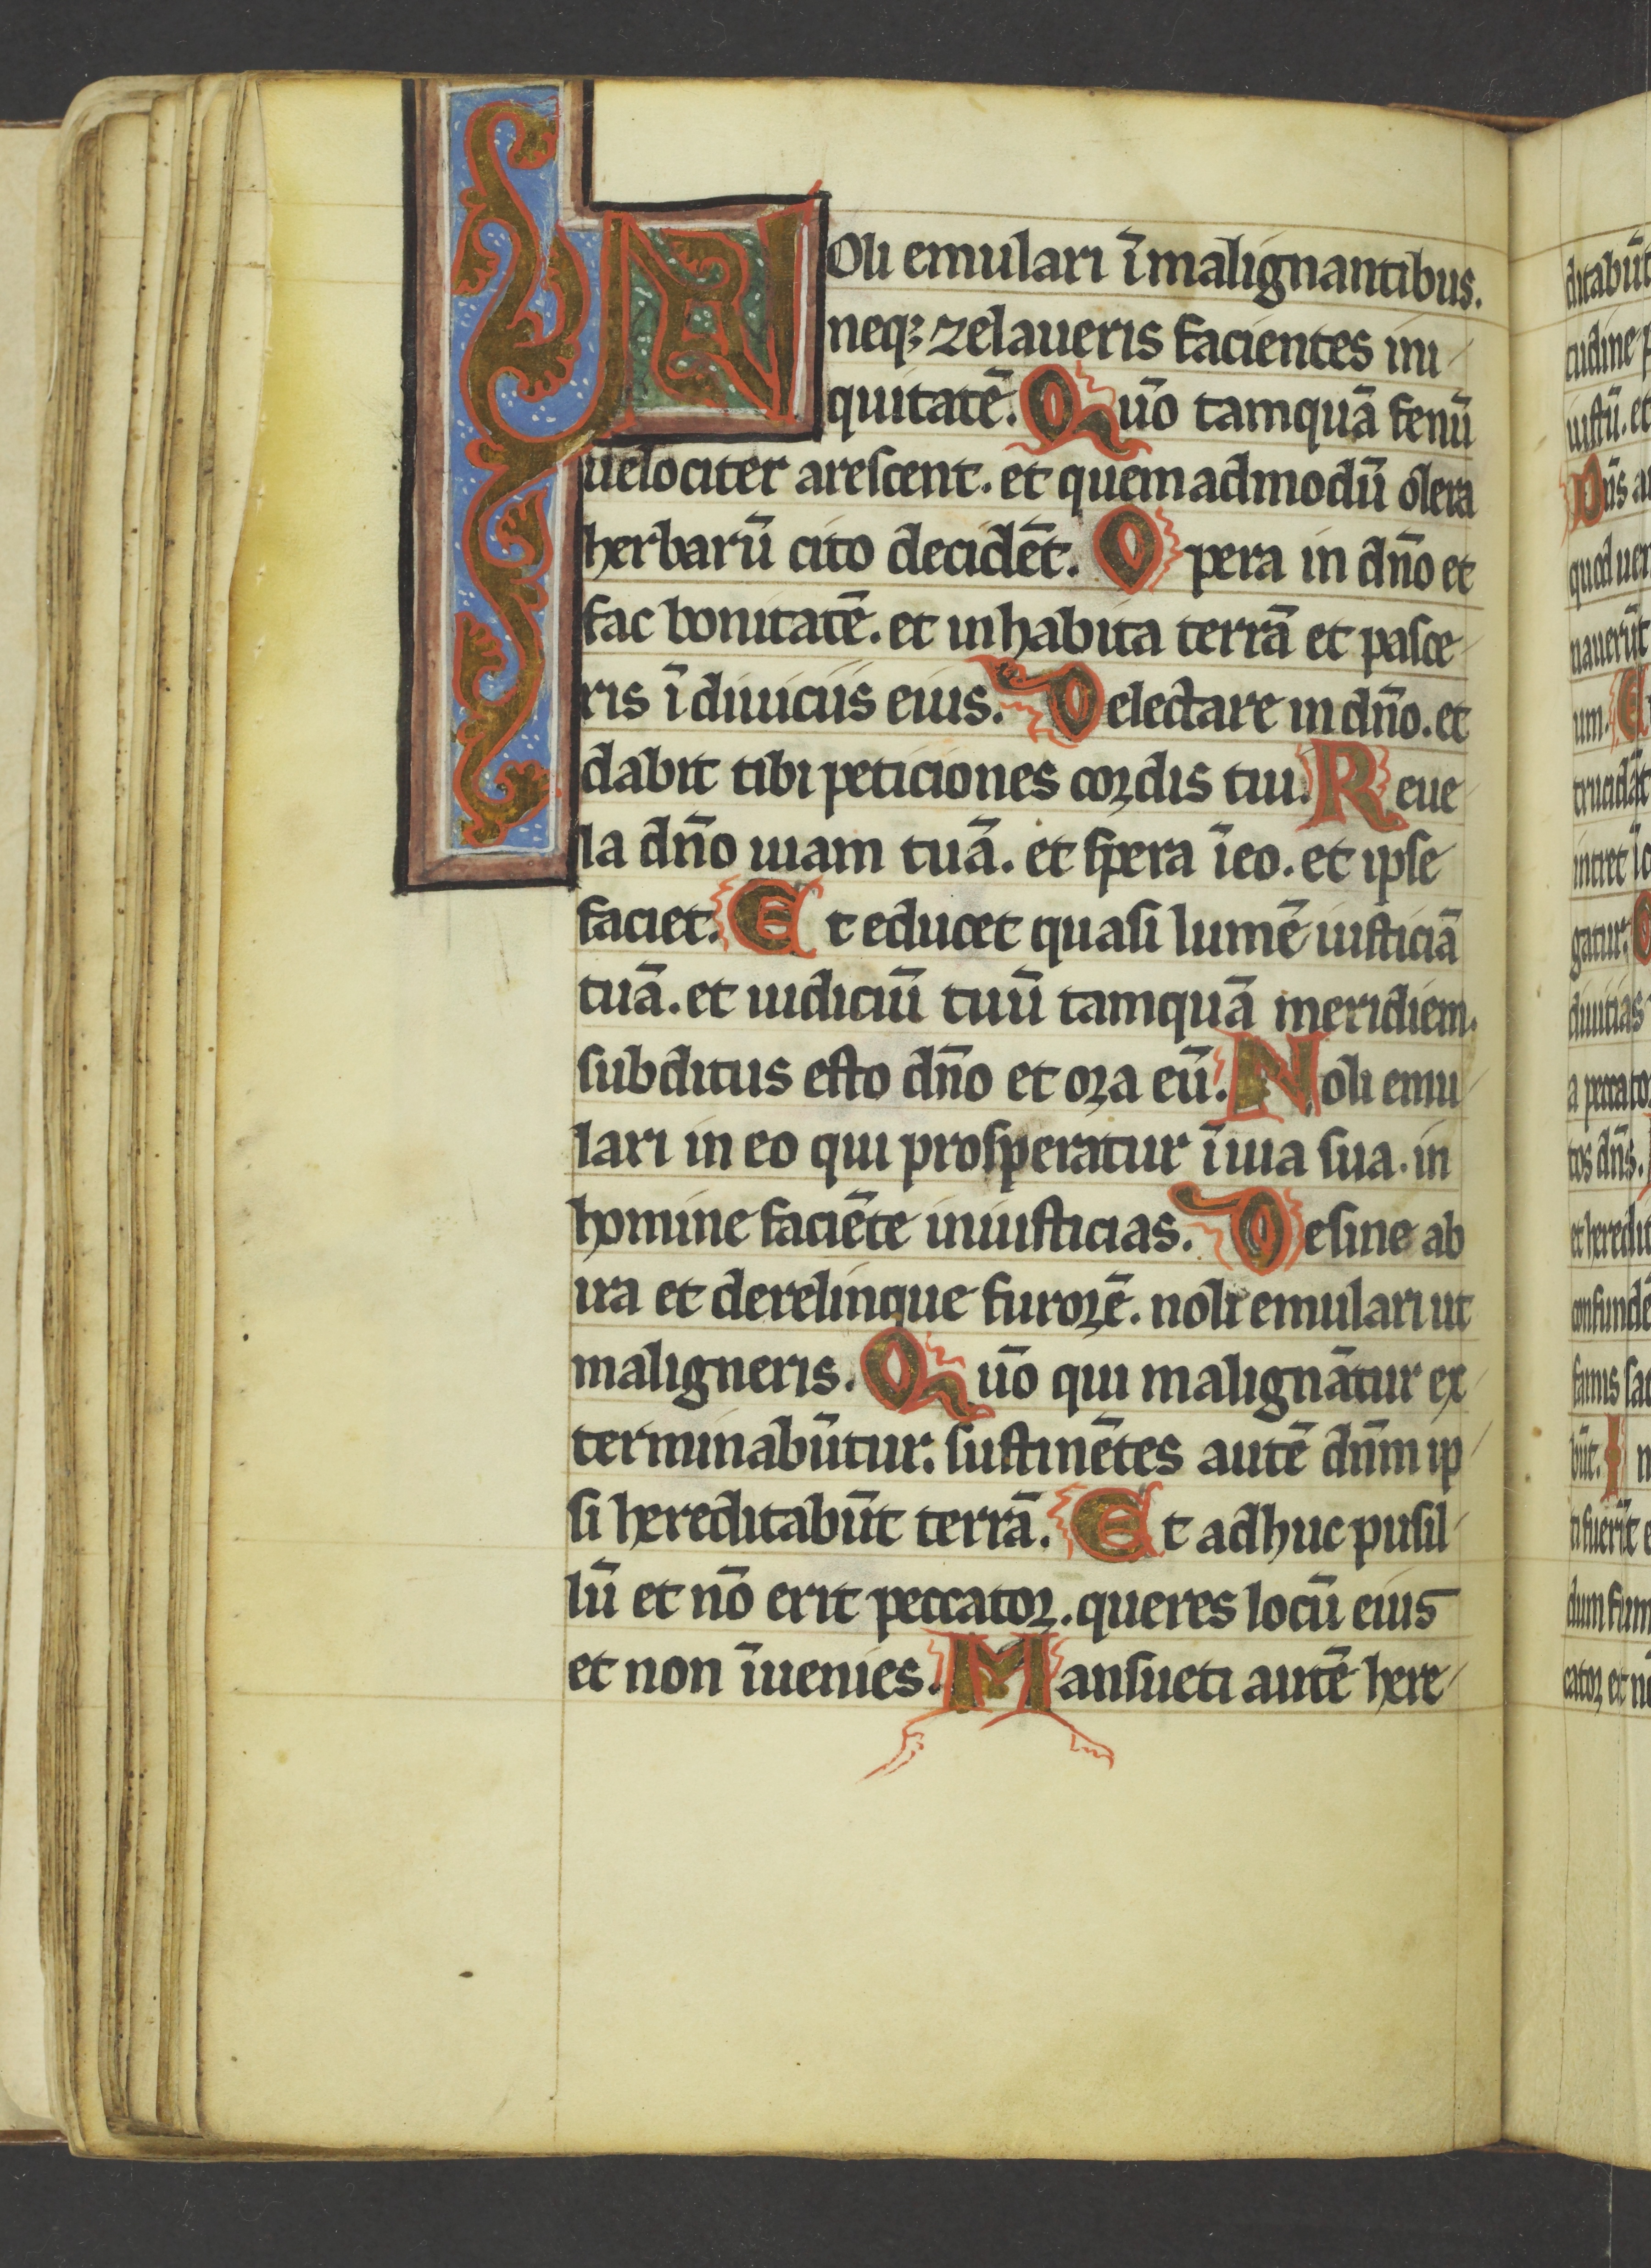 NOli emulari īmalignantibus.
neqꝫ zelaueris facientes ini
quitatē. Qūo tamquā fenū
uelociter arescent. et quemadmodū olera
herbarū cito decidēt. Opera in dn̄o et
fac bonitatē. et inhabita terrā et pasce
ris ī diuiciis eius. Delectare in dn̄o. et
dabit tibi peticiones cordis tui. Reue
la dn̄o uiam tuā. et spera īeo. et ipse
faciet. Et educet quasi lumē iusticiā
tuā. et iudiciū tuū tamquā meridiem.
subditus esto dn̄o et ora eū. Noli emu
lari in eo qui prosperatur ī uia sua. in
homine faciēte iniusticias. Desine ab
ira et derelinque furorē. noli emulari ut
maligneris. Qūo qui malignātur ex
terminabūtur. sustinētes autē dn̄m ip
si hereditabūt terrā. Et adhuc pusil
lū et nō erit peccator. queres locū eius
et non īuenies. Mansueti autē here
ditabūt
tudine
iustū. et
Dn̄s
quod uer
nauerūt
um. E
trucidāt
intret
gatur.
diuitias
a peccato
tos dn̄s.
et heredit
confundē
famis sat
būt. I n
ti fuerīt
dum fum
cator et